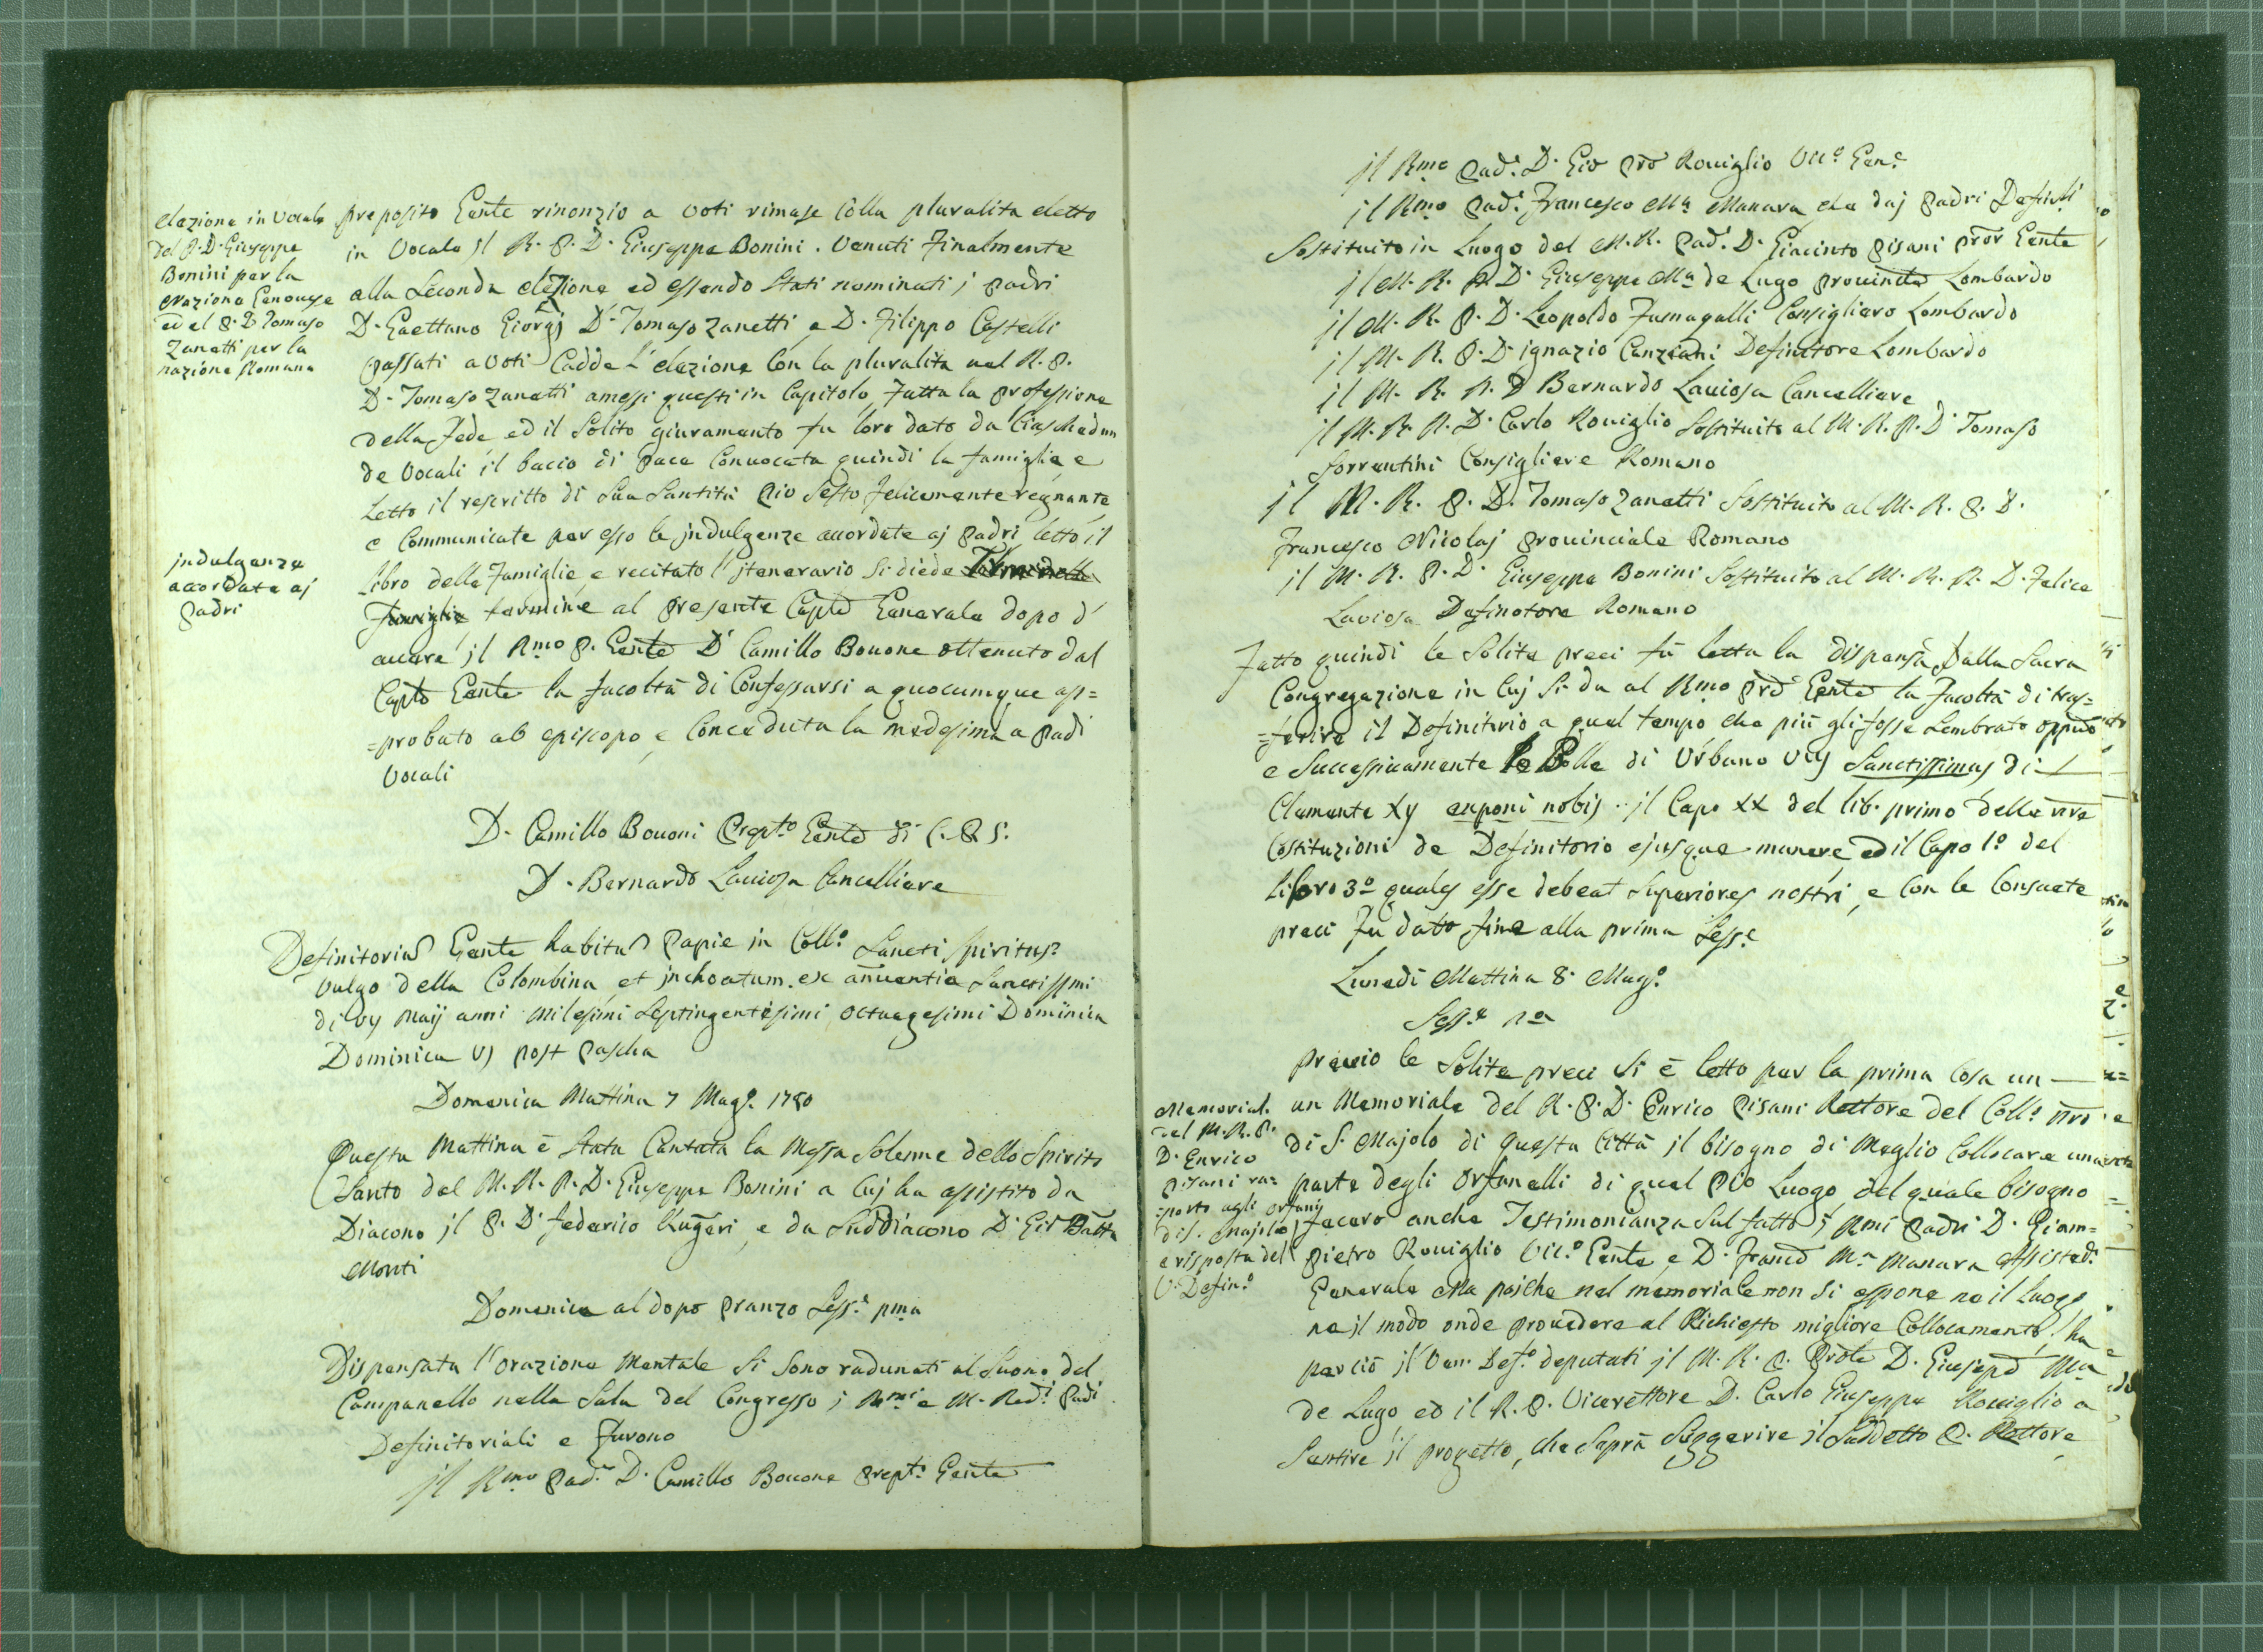 elezione in Vocale
del P. D. Giuseppe
Bonini per la
nazione Genovese
ed el P. D. Tomaso
Zanetti per la
nazione Romana
preposito Gente rinonzio a voti rimase colla pluralita eletto
in Vocale il R. P. D. Giuseppe Bonini. Venuti finalmente
alla Seconda elezione ed essendo Stati nominati j Padri
D. Gaettano Giorgj D. Tomaso Zanetti, e D. Filippo Castelli
passati a voti Cadde l'elezione Con la pluralita nel R. P.
D. Tomaso Zanetti amessi questi in Capitolo, fatta la Professione
della Fede ed il Solito giuramento fu loro dato da Ciaschedun
de Vocali il bacio di pace Convocata quindi la famiglia e
Letto il rescritto di Sua Santità Pio Sesto felicemente regnante
e Communicate per esso le jndulgenze accordate aj Padri letto il
jndulgenze
accordate aj
Padri
libro delle Famiglie, e recitato l'jtenerario Si diede
Famiglie termine al presente Capto Generale dopo d'
avere jl Rmo P. Gente D. Camillo Bovone ottenuto dal
Capto Gente la facoltà di Confessarsi a quocumque ap=
=probato ab episcopo, e Conceduta la medesima a Padi
Vocali
D. Camillo Bovoni Prepto Gente di C. R. S.
D. Bernardo Laviosa Cancelliere
Definitoriu Gente habitu Papie in Collo Sancti Spiritus
vulgo della Colombina, et jnchoatum ex annuentia Sanctissmi
di vij Maij anni Milesimi Septingentesimi octuagesimi Dominica
Dominica Vj post Pascha
Domenica Mattina 7 Mago 1780
Questa Mattina è Stata Cantata la Messa Solenne dello Spirito
Santo dal M. R. P. D. Giuseppe Bonini a Cuj ha assistito da
Diacono jl P. D. Federico Rugeri, e da Suddiacono D. Gio Batta
Monti
Domenica al dopo Pranzo Sesse pma
Dispensata l'orazione Mentale Si Sono radunati al Suono del
Campanello nella Sala del Congresso j Rmi e M. Redi Padi
Definitoriali e furono
jl Rmo Pade D. Camillo Bovone Prepto Gente
jl Rmo Pade D. Gio Pro Roviglio Vico Gene
jl Rmo Pade Francesco Ma Manara che daj Padri Definiti
Sostituito in Luogo del M. R. Pade D. Giacinto Pisani Pror Gente
jl M. R. P. D. Giuseppe Ma de Lugo Provincle Lombardo
jl M. R. P. D. Leopoldo Fumagalli Consigliero Lombardo
jl M. R. P. D. ignazio Canziani Definitore Lombardo
jl M. R. P. D. Bernardo Laviosa Cancelliere
jl M. R. P. D. Carlo Roviglio Sostituito al M. R. P. D. Tomaso
Sorrentini Consigliere Romano
jl M. R. P. D. Tomaso Zanetti Sostituito al M. R. P. D.
Francesco Nicolaj Provinciale Romano
jl M. R. P. D. Giuseppe Bonini Sostituito al M. R. P. D. Felice
Laviosa Definotore Romano
Fatto quindi le Solite preci fù letta la dispensa dalla Sacra
Congregazione in Cuj Si da al Rmo Prd Gente la Facoltà di tras=
=ferire il Definitorio a quel tempo che più gli fosse Sembrato oppuo
e Successivamente le Bolle di Urbano Viij Sanctissimus di
Clemente Xij exponi nobis jl Capo XX del lib. primo delle nre
Costituzioni de Definitorio ejusque munere ed il Capo 1o del
Libro 3o quales esse debeat Superiores nostri, e Con le Consuete
preci fu dato fine alla prima Sesse
Lunedi Mattina 8. Mago
Sesse
previo le Solite preci Si è letto per la prima Cosa un
un Memoriale del R. P. D. Enrico Pisani Rettore del Collo nro
Memorial.
del M. R. P.
D. Enrico
Pisani ra=
=porto agli orfanij
di S. Majolo
e risposta del
V. Defino
di S. Majolo di questa Città jl bisogno di Meglio Collocare una
parte degli Orfanelli di quel Pio Luogo del quale bisogno
fecero anche Testimonianza Sul fatto j Rmi Padri D. Giam=
Pietro Roviglio Vico Gente, e D. Franco Ma Manara Assisted.
Generale Ma poiche nel memoriale non Si espone ne il Luogo
ne jl modo onde provedere al Richiesto migliore Collocamento, ha
perciò jl Ven. Defo deputati jl M. R. P. Prole D. Giusepe Ma
de Lugo ed il R. P. Vicerettore D. Carlo Giuseppe Roviglio a
Sentire jl progetto, che Saprà Suggerire jl Suddetto P. Rettore